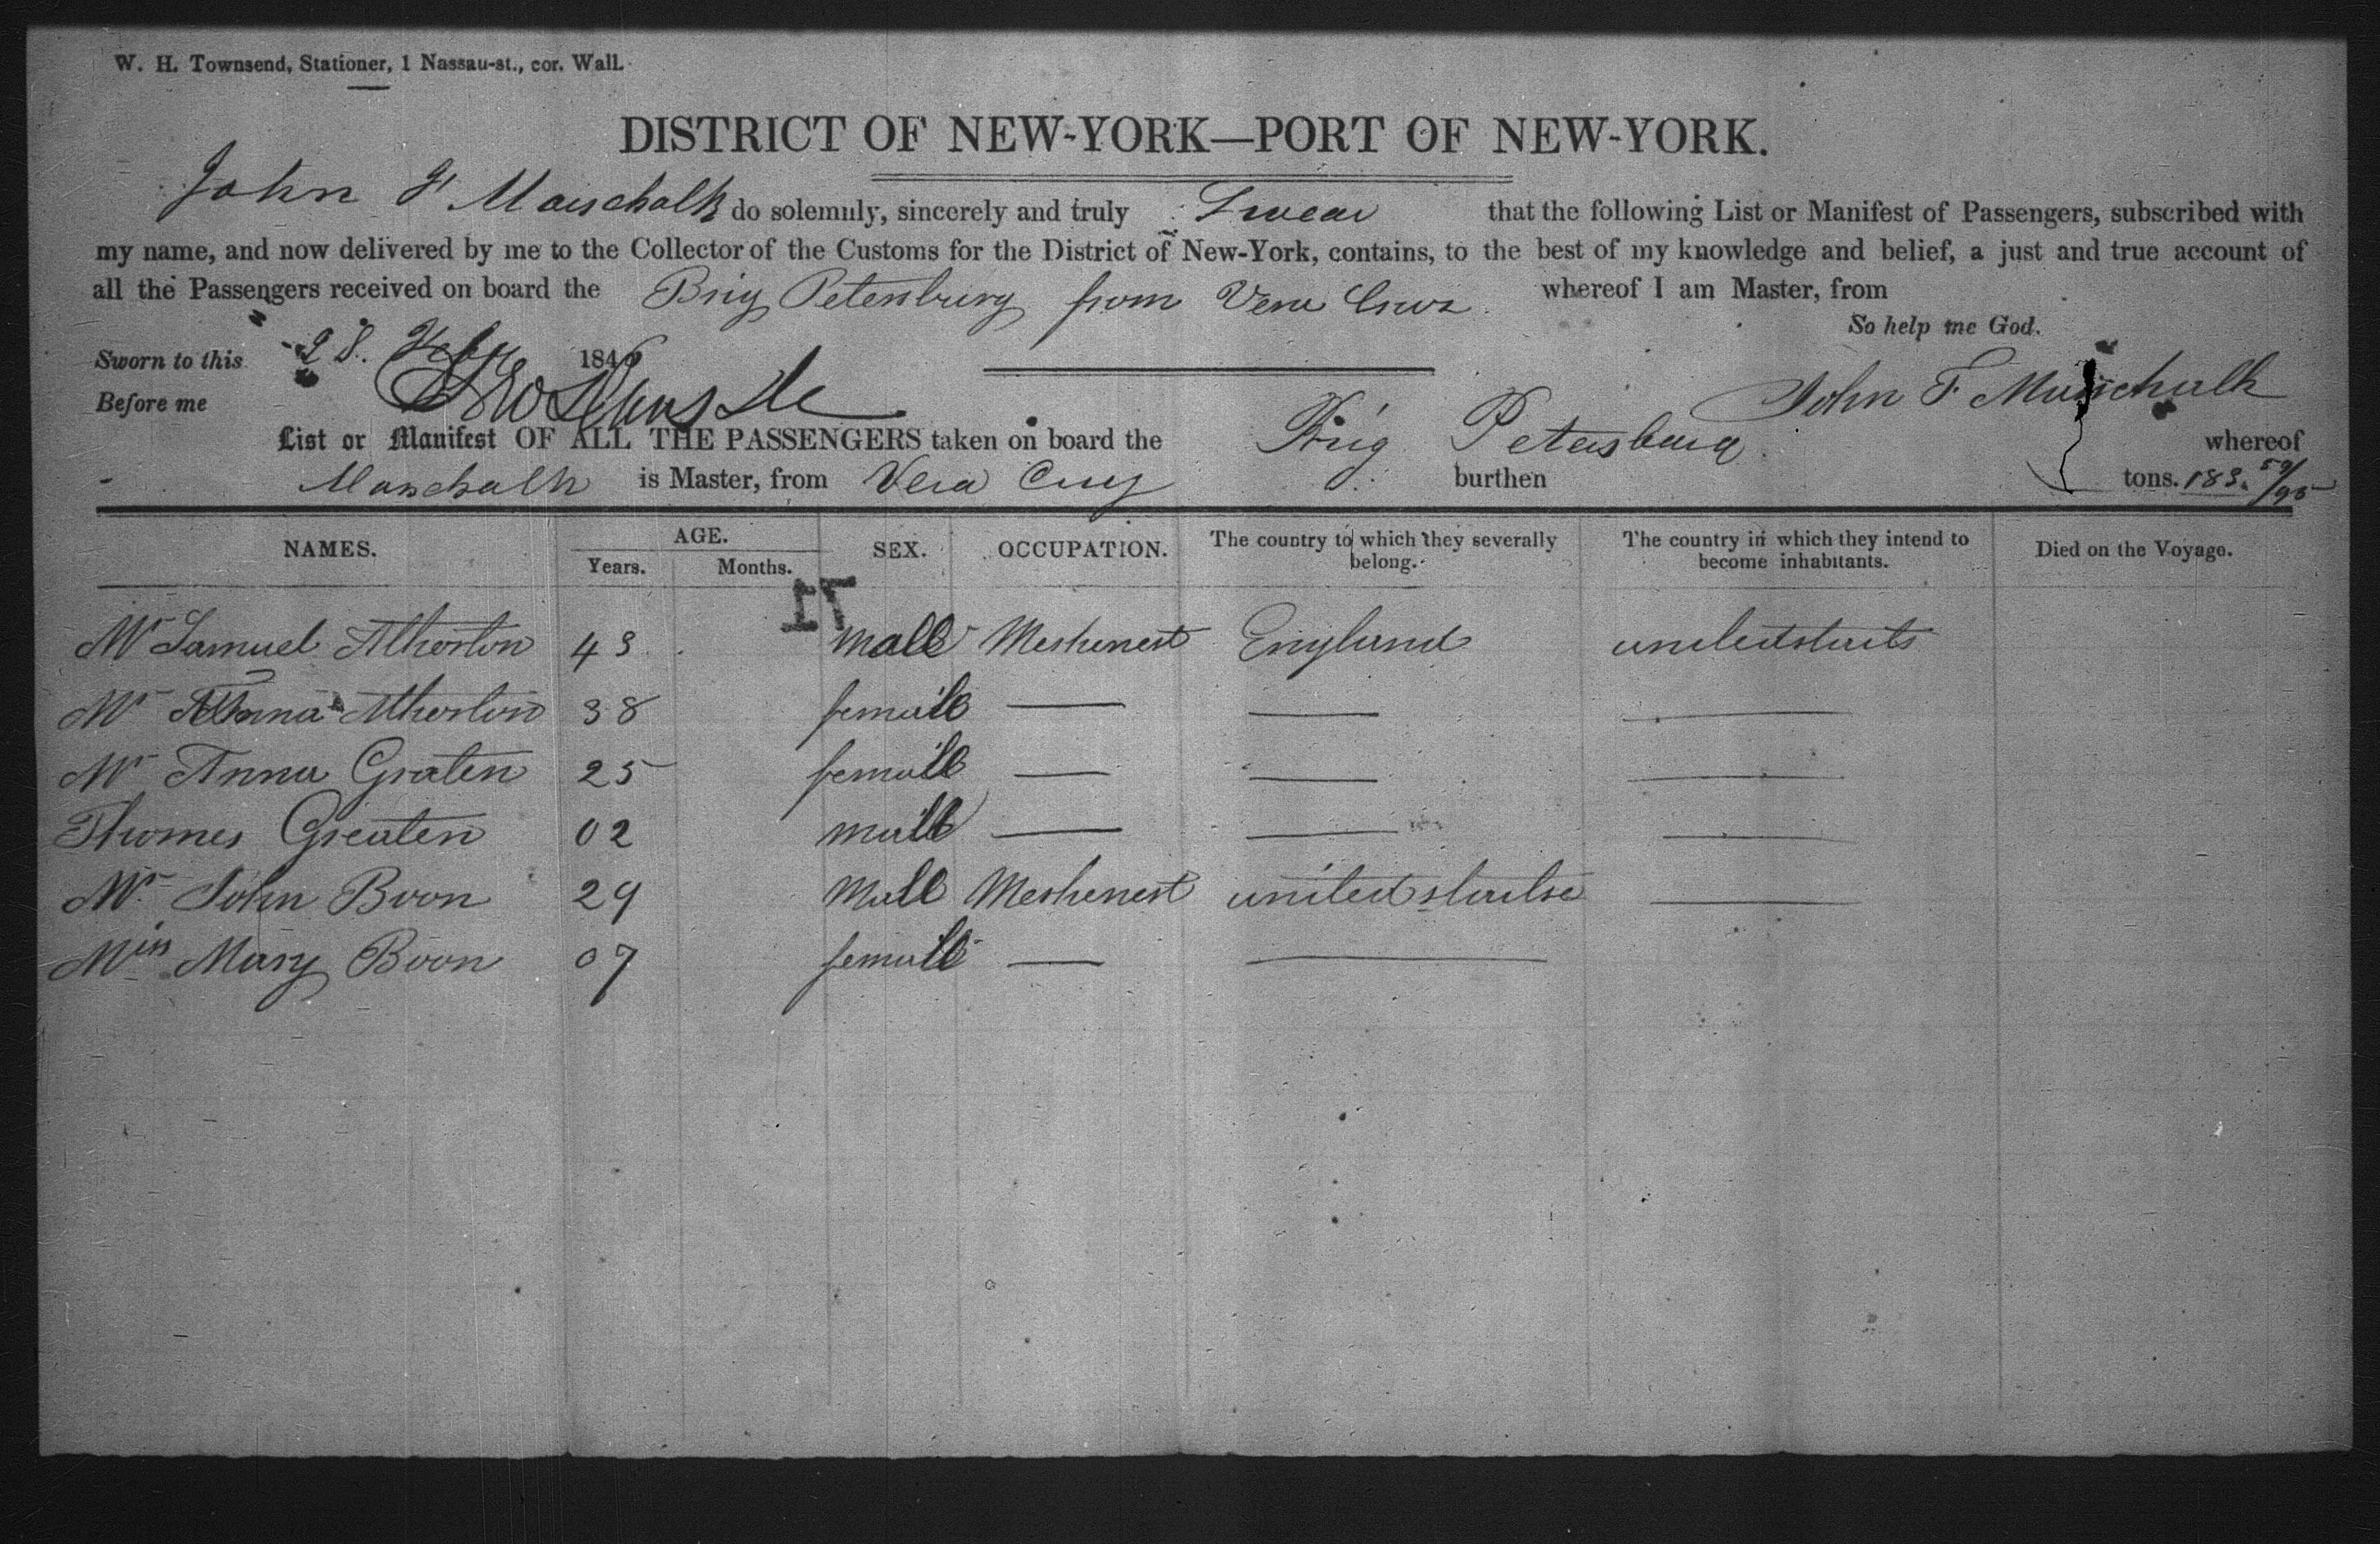 W. H. Townsend, Stationer, 1 Nassau-st., cor. Wall.
DISTRICT OF NEW-YORK—PORT OF NEW-YORK.
John F Marschalk do solemnly, sincerely and truly Swear that the following List or Manifest of Passengers, subscribed with
my name, and now delivered by me to the Collector of the Customs for the District of New-York, contains, to the best of my knowledge and belief, a just and true account of
all the Passengers received on board the Brig Petersburg from Vera Cruz whereof I am Master, from
So help me God.
Sworn to this 28. Feby 1846
John F Marschalk
Before me
List or Manifest OF ALL THE PASSENGERS taken on board the Brig Petersburg whereof
Marschalk is Master, from Vera Cruz burthen tons. 183. 59/95
NAMES. AGE. SEX. OCCUPATION. The country to which they severally belong. The country in which they intend to become inhabitants. Died on the Voyage.
Years. Months.
17
Mr Samuel Atherton 43 male Meshenest England unitedstaits
Mr Anna Atherton 38 femaile — — —
Mr Anna Graten 25 femaile — — —
Thomes Greaten 02 maile — — —
Mr John Boon 29 Male Meshenest united staitse —
Miss Mary Boon 07 femaile — —